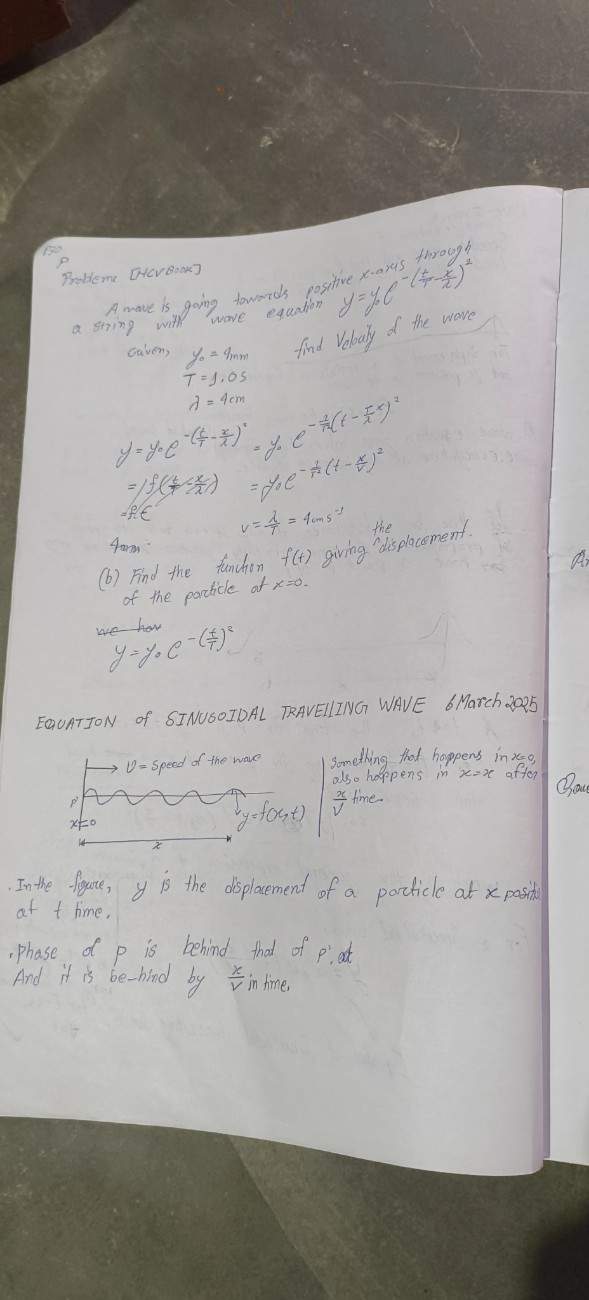 P
Problems [HCV BOOK]
A wave is going towards positive x-axis through
a string with wave equation y = y₀e^-(t/T - x/λ)²
Given, y₀ = 4mm find Velocity of the wave
T = 1.0 s
λ = 4cm
y = y₀e^-(t/T - x/λ)² = y₀ e^-1/T²(t - T/λ x)²
= f(t/T - x/λ) = y₀e^-1/T²(t - x/v)²
v = λ/T = 4cm s⁻¹
4mm
(b) Find the function f(t) giving the displacement.
of the particle at x=0.
we hav
y = y₀ e^-(t/T)²
EQUATION of SINUSOIDAL TRAVELLING WAVE 6 March 2025
v = speed of the wave
P'
x=0
y=f(x,t)
x
Something that happens in x=0,
also happens in x=x after
x/v time.
. In the figure, y is the displacement of a particle at x positi
at t time.
. Phase of P is behind that of P'. at
And it is be-hind by x/v in time.